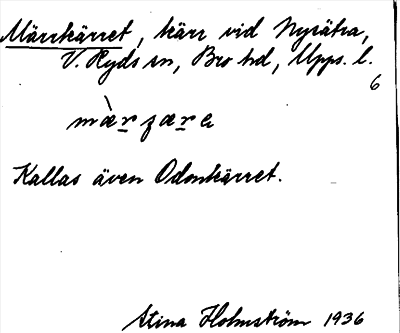 Märrkärret, kärr vid Nysätra,
V. Ryds sn, Bro hd, Upps. l.
6
Kallas även Odonkärret.
Stina Holmström 1936